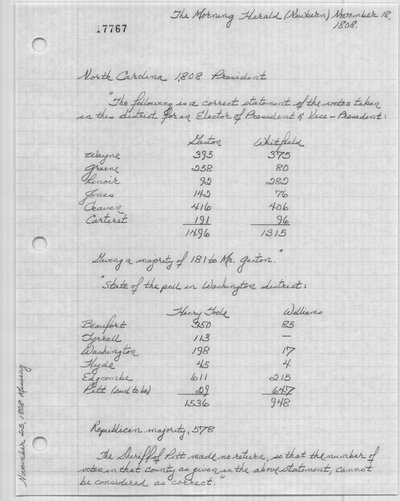 The Morning Herald (Newbern) November 18,
1808.
17767
North Carolina 1808 President
"The following is a correct statement of the votes taken
in this district for an Elector of President & Vice-President:
Gaston Whitfield
Wayne 395 375
Greene 258 80
Lenoir 92 282
Jones 142 76
Craven 416 406
Carteret 191 96
1496 1315
Giving a majority of 181 to Mr. Gaston."
"State of the poll in Washington district:
Henry Toole Williams
Beaufort 350 85
Tyrrell 113 —
Washington 198 17
Hyde 45 4
Edgcombe 611 215
Pitt (said to be) 219 627
1536 948
Republican majority, 578
The Sheriff of Pitt made no return, so that the number of
votes in that county as given in the above statement, cannot
be considered as correct."
November 25, 1808 Missing